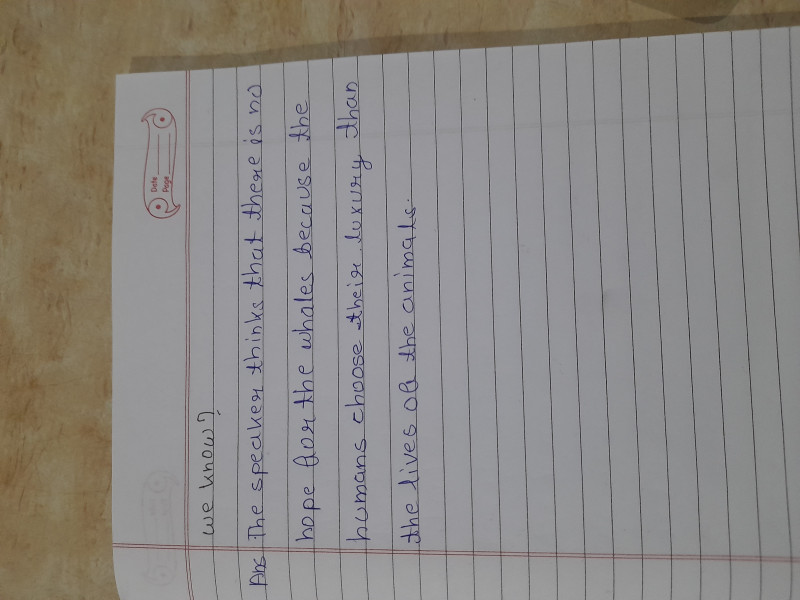 Date
Page
we know?
Ans The speaker thinks that there is no
hope for the whales because the
humans choose their luxury than
the lives of the animals.